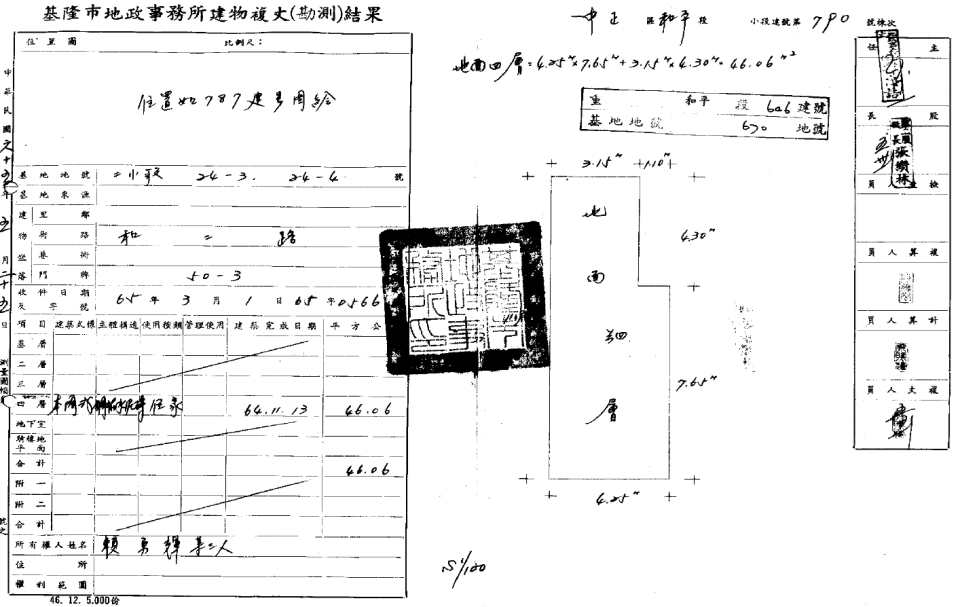 基隆市地政事務所建物複丈(勘測)結果
位置圖 比例尺:
位置如787建号圖繪
基地地號 二小段 24-3. 24-4. 號
基地來源
建 里鄰
物 街路 和二路
坐 巷衖
落 門牌 50-3
收件日期及字號 65年3月1日65字0566
項目 建築式樣 主體構造 使用種類 管理使用 建築完成日期 平方公
基層
二層
三層
四層 64.11.13 46.06
地下室
騎樓地平面
合計 46.06
附一
附二
合計
所有權人姓名
住所
權利範圍
46. 12. 5.000份
中正區 和平段 小段建號第 790 號棟次
地面四層=4.25ᵐ×7.65ᵐ+3.15ᵐ×4.30ᵐ=46.06ᵐ²
重 和平 段 646 建號
基地地號 670 地號
3.15ᵐ 1.10ᵐ
4.30ᵐ
地面四層
7.65ᵐ
4.25ᵐ
S 1/100
主任
股長
檢查員
複算人員
計算人員
複丈人員